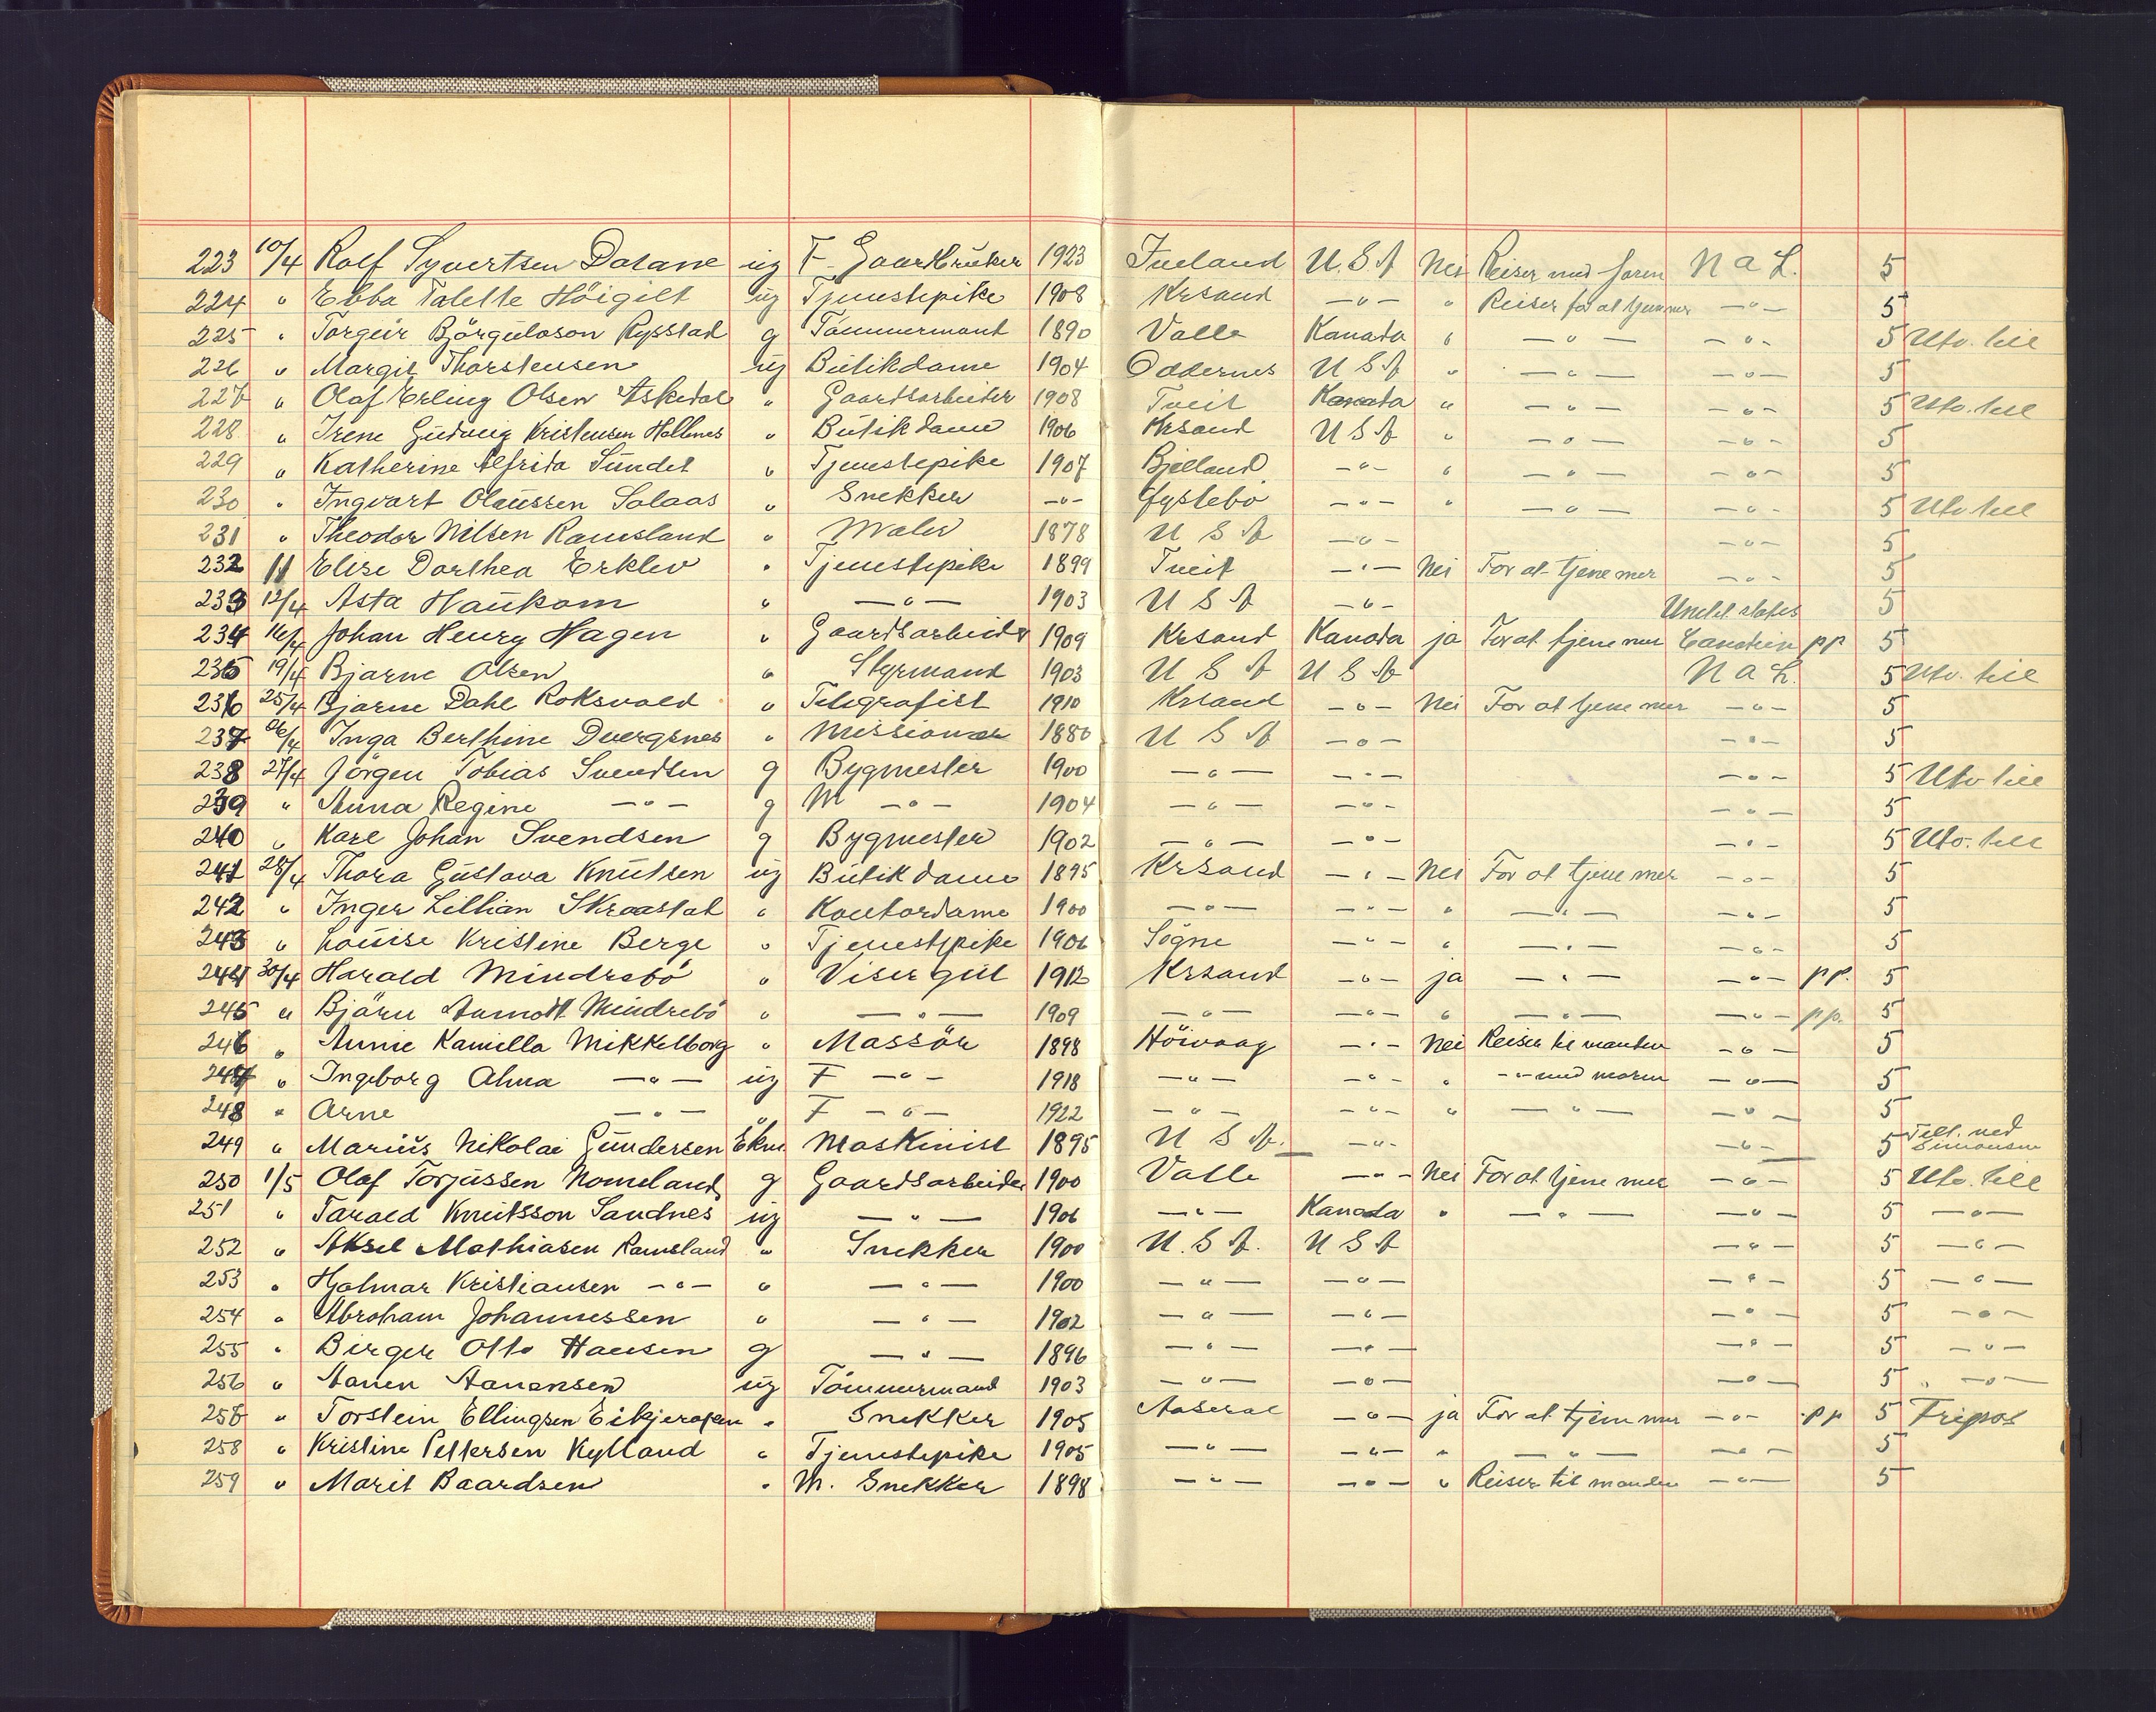 223 10/4 Rolf Syvertsen Dalane ug F. Gaardbruker 1923 Iveland U.S.A Nei Reiser med faren N a L. 5
224 " Ebba Talette Höigilt ug Tjenestepike 1908 Krsand —"— " Reiser for at tjene mer —"— 5
225 " Torgeir Björgulvson Rysstad g Tömmermand 1890 Valle Kanada " —"— —"— 5 Utv. till
226 " Margit Thorstensen ug Butikdame 1904 Oddernes U S A " —"— —"— 5
227 " Olaf Erling Olsen Askedal " Gaardsarbeider 1908 Tveit Kanada " —"— —"— 5 Utv. till
228 " Irene Gudveig Kristensen Hellenes " Butikdame 1906 Krsand U S A " —"— —"— 5
229 " Katherine Alfrida Sundet " Tjenestepike 1907 Bjelland —"— " —"— —"— 5
230 " Ingvart Olaussen Salaas " Snekker —"— Gystebö —"— " —"— —"— 5 Utv till
231 " Theodor Nilsen Ramsland " Maler 1878 U S A —"— —"— 5
232 11 Elise Dorthea Erklev " Tjenestepike 1899 Tveit —"— Nei For at tjene mer —"— 5
233 12/4 Asta Haukom " —"— 1903 U S A —"— 5
234 16/4 Johan Henry Hagen " Gaardsarbeider 1909 Krsand Kanada ja For at tjene mer United states Canadien pp 5
235 19/4 Bjarne Olsen " Styrmand 1903 U S A U S A N a L. 5 Utv. till
236 25/4 Bjarne Dahl Roksvold " Telegrafist 1910 Krsand —"— Nei For at tjene mer —"— 5
237 26/4 Inga Berthine Dvergsnes " Missionær 1880 U S A —"— —"— 5
238 27/4 Jörgen Tobias Svendsen g Bygmester 1900 —"— —"— —"— 5 Utv till
239 " Anna Regine —"— g M —"— 1904 —"— —"— —"— 5
240 " Karl Johan Svendsen g Bygmester 1902 —"— —"— —"— 5 Utv. till
241 28/4 Thora Gustava Knutsen ug Butikdame 1895 Krsand —"— Nei For at tjene mer —"— 5
242 " Inger Lillian Skraastad " Kontordame 1900 —"— —"— " —"— —"— 5
243 " Louise Kristine Berge " Tjenestepike 1906 Sögne —"— " —"— —"— 5
244 30/4 Harald Mindrebö " Visergut 1912 Krsand —"— ja —"— —"— pp. 5
245 " Björn Aamodt Mindrebö " —"— 1909 —"— —"— " —"— —"— pp. 5
246 " Annie Kamilla Mikkelborg " Massör 1898 Höivaag —"— Nei Reiser til manden —"— 5
247 " Ingeborg Alma —"— ug F —"— 1918 —"— —"— " —"— med moren —"— 5
248 " Arne —"— " F —"— 1922 —"— —"— " —"— —"— 5
249 " Marius Nikolai Gundersen Ekm. Maskinist 1895 U S A. —"— —"— 5 Till. ved Simonsen
250 1/5 Olaf Torjussen Nomeland g Gaardsarbeider 1900 Valle —"— Nei For at tjene mer —"— 5 Utv. till
251 " Tarald Knutsson Sandnes ug —"— 1906 —"— Kanada " —"— —"— 5 —"—
252 " Aksel Mathiasen Ramsland " Snekker 1900 U. S A. U S A —"— 5 —"—
253 " Hjalmar Kristiansen —"— " —"— 1900 —"— —"— —"— 5 —"—
254 " Abraham Johannessen " —"— 1902 —"— —"— —"— 5 —"—
255 " Birger Otto Hansen g —"— 1896 —"— —"— —"— 5 —"—
256 " Aanen Aanensen ug Tömmermand 1903 —"— —"— —"— 5 " —"—
257 " Torstein Ellingsen Eikjeropen " Snekker 1905 Aaseral —"— ja For at tjene mer —"— pp 5 Fripas
258 " Kristine Pettersen Kylland " Tjenestepike 1905 —"— —"— " —"— —"— 5
259 " Marit Baardsen " M. Snekker 1898 —"— —"— " Reiser til manden —"— 5